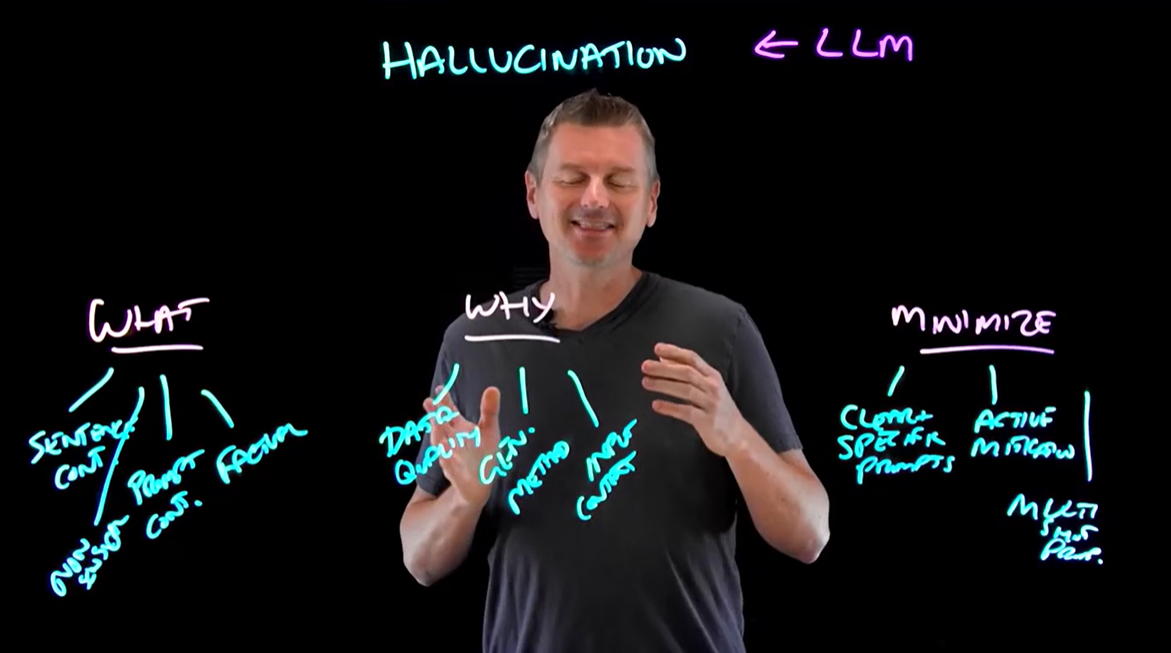 HALLUCINATION ← LLM
WHAT
SENTENCE
CONT.
PROMPT
CONT.
FACTUAL
NON
WHY
DATA
QUALITY
GEN.
METHOD
INPUT
CONTEXT
MINIMIZE
CLEAR +
SPECIFIC
PROMPTS
ACTIVE
MITIGATION
MULTI
SHOT